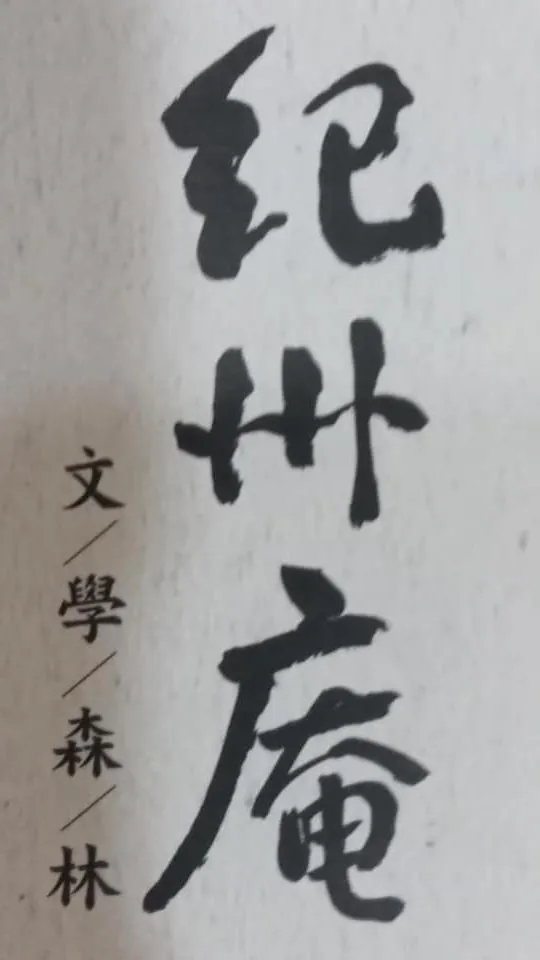 紀州庵
文/學/森/林